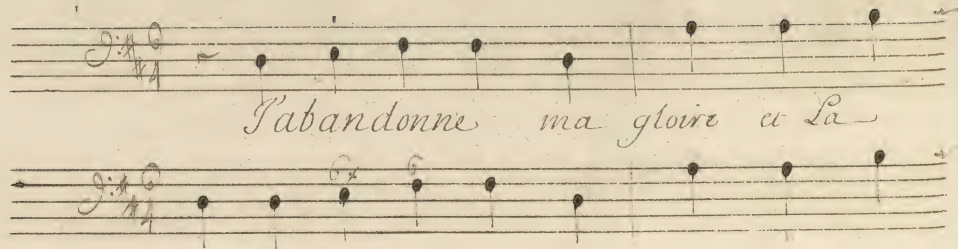 6
4
J'abandonne ma gloire et La
6 6x 6
4